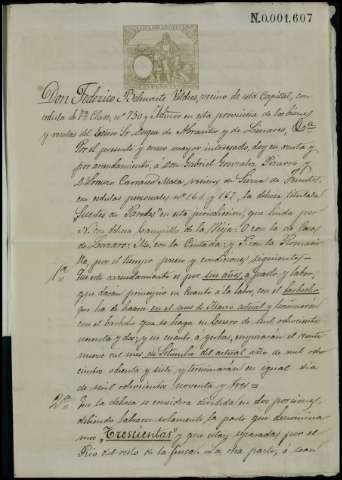 N.0.001.607
Don Federico Belmonte Vilches, vecino de esta Capital, con
cedula de 7ª Clase, nº 750 y Admor en esta provincia de los bienes
y rentas del Excmo Sr. Duque de Abrantes y de Linares,
Por el presente y como mayor interesado, doy en renta y
por arrendamiento, á don Gabriel Gonzalez Pizarro y
D. Lorenzo Carrasco Mata, vecinos de Sierra de Fuentes,
con cedulas personales nº 164 y 167, la dehesa titulada
"Suertes de Paredes" en esta jurisdiccion, que linda por
N. con dehesa Campillo de la Mejia: O con la de Casas
de Lazaro: M. con la Cortada: y P. con la Romani-
lla, por el tiempo, precio y condiciones siguientes=
1ª= Este arrendamiento es por seis años, á pasto y labor,
que daran principio en cuanto á la labor, con el barbecho
que ha de hacer en el mes de Enero actual y terminarán
con el barbecho que se haga en Enero de mil ochocientos
noventa y dos; y en cuanto á yerbas, empezaran el veinte
nueve del mes de Stiembre del actual año de mil ocho
cientos ochenta y siete y terminarán en igual dia
de mil ochocientos noventa y tres=
2ª= Que la dehesa se considera dividida en dos porciones,
debiendo labrarse solamente la parte que denomina
mos "Trescientas" y que estan separadas por el
Rio del resto de la finca. La otra parte, ó sean